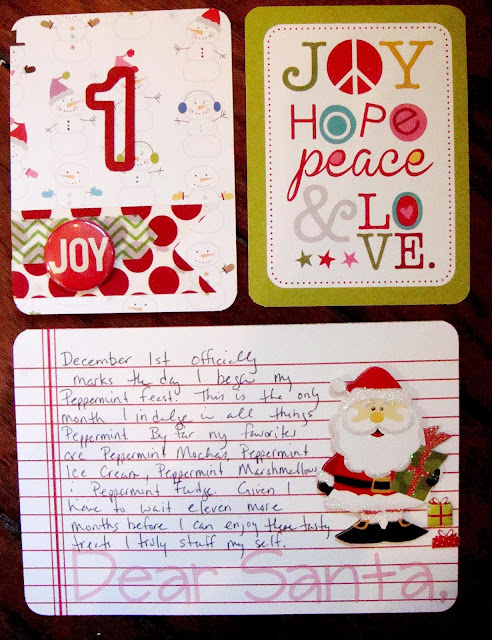 1
JOY
JOY
HOPE
peace
& LO
VE.
December 1st officially
marks the day I begin my
Peppermint feast. This is the only
month I indulge in all things
Peppermint By far my favorites
are Peppermint Mochas, Peppermint
Ice Cream, Peppermint Marshmallows
& Peppermint Fudge. Given I
have to wait eleven more
months before I can enjoy these tasty
treats I truly stuff my self.
Dear Santa,